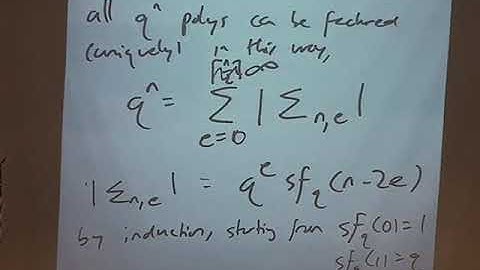 all qⁿ polys can be factored
(uniquely) in this way,
qⁿ = ∑ |Σₙ,ₑ|
e=0
|Σₙ,ₑ| = qᵉ sf_q(n-2e)
by induction, starting from sf_q(0)=1
sf_q(1)=q